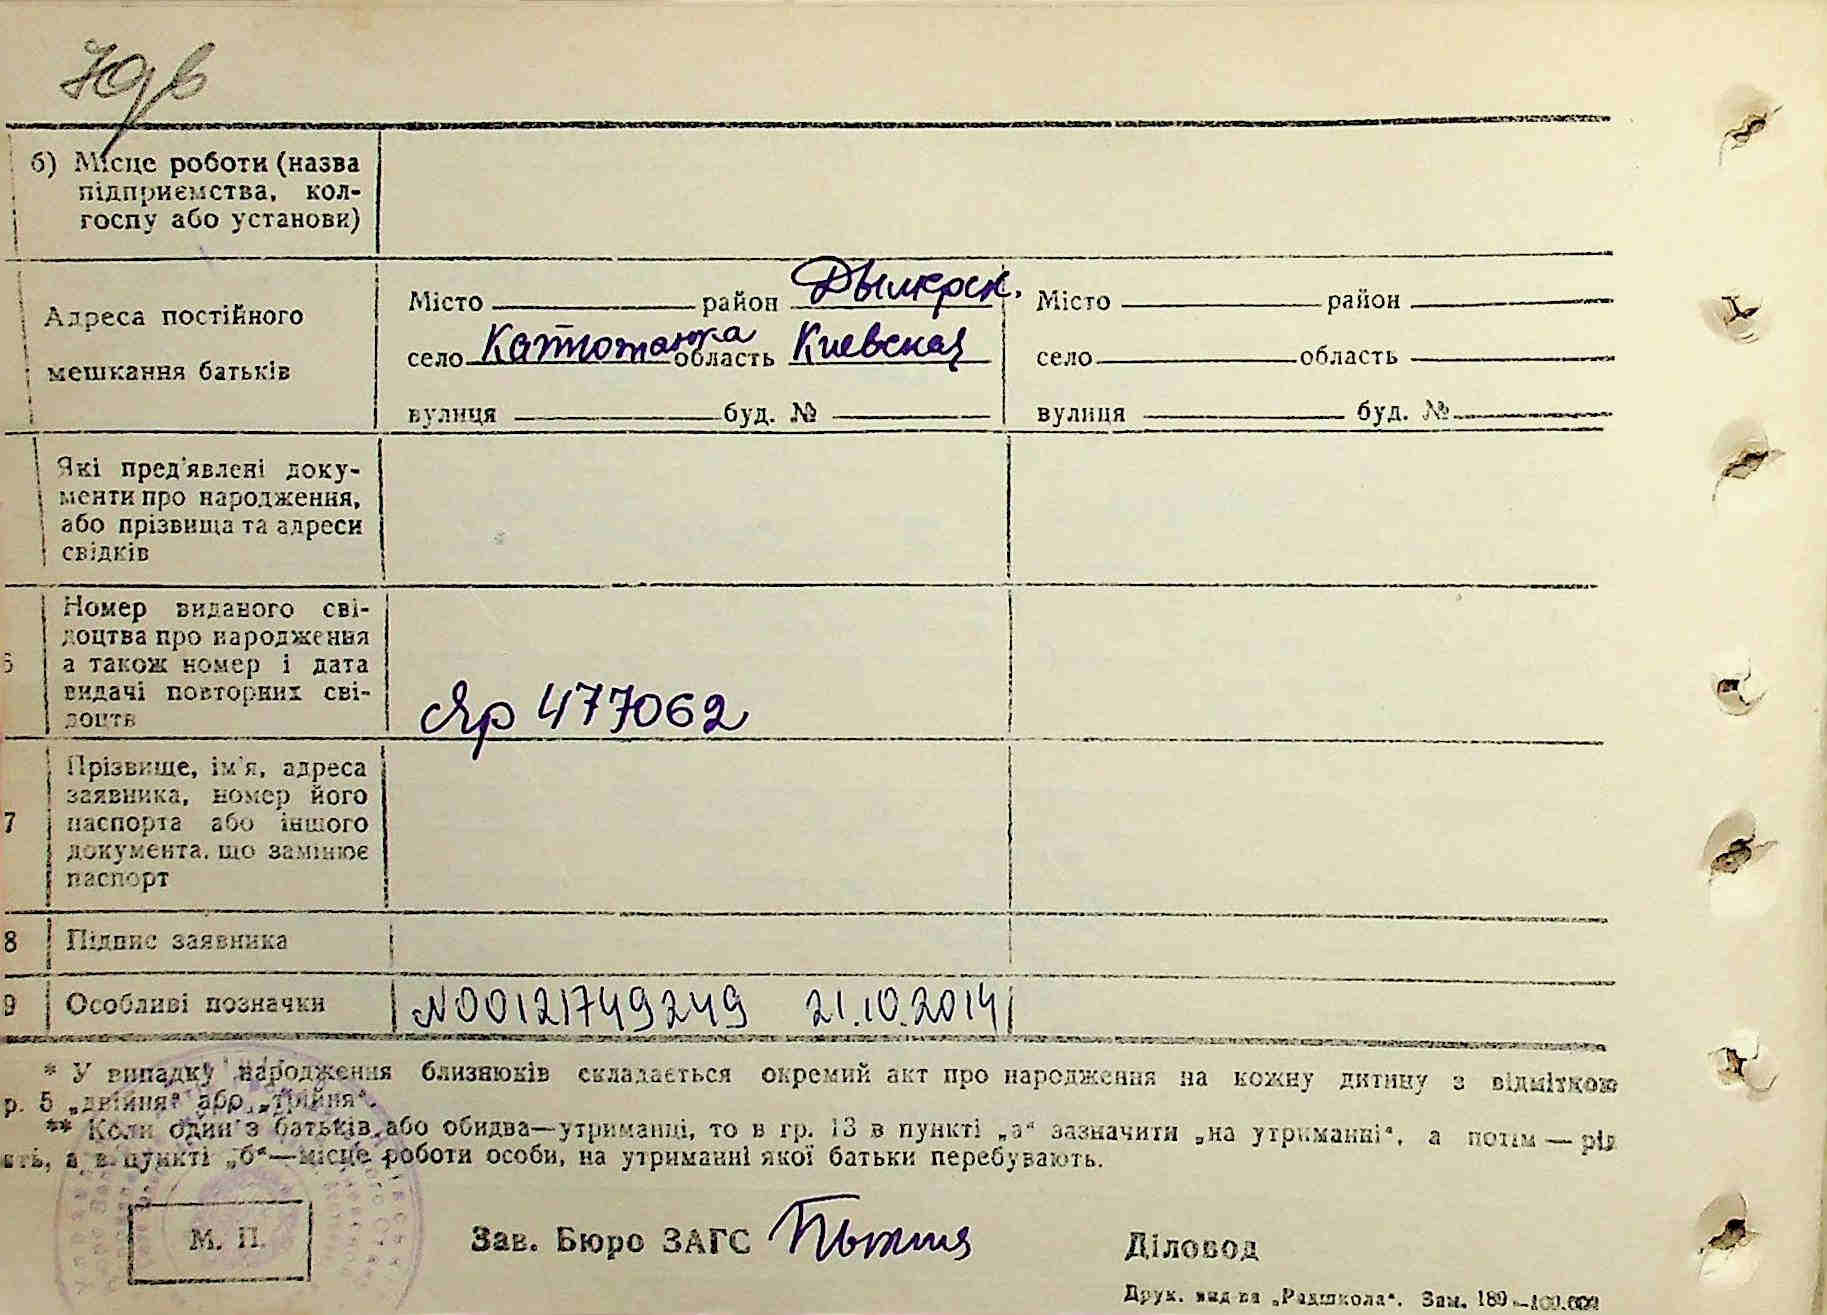 70в
б) Місце роботи (назва
підприємства, кол-
госпу або установи)
Адреса постійного
мешкання батьків
Місто район Дымерск.
село Катюжанка область Киевская
вулиця буд. №
Місто район
село область
вулиця буд. №
Які пред'явлені доку-
менти про народження,
або прізвища та адреси
свідків
6
Номер виданого сві-
доцтва про народження
а також номер і дата
видачі повторних сві-
доцтв
Яр 477062
7
Прізвище, ім'я, адреса
заявника, номер його
паспорта або іншого
документа, що замінює
паспорт
8 Підпис заявника
9 Особливі позначки N00121749249 21.10.2014
* У випадку народження близнюків складається окремий акт про народження на кожну дитину з відміткою
р. 5 „двійня“ або „трійня“.
** Коли один з батьків або обидва—утриманці, то в гр. 13 в пункті „а“ зазначити „на утриманні“, а потім — рід
ять, а в пункті „б“—місце роботи особи, на утриманні якої батьки перебувають.
М. П.
Зав. Бюро ЗАГС
Діловод
Друк. вид-ва „Радшкола“. Зам. 189—100.000